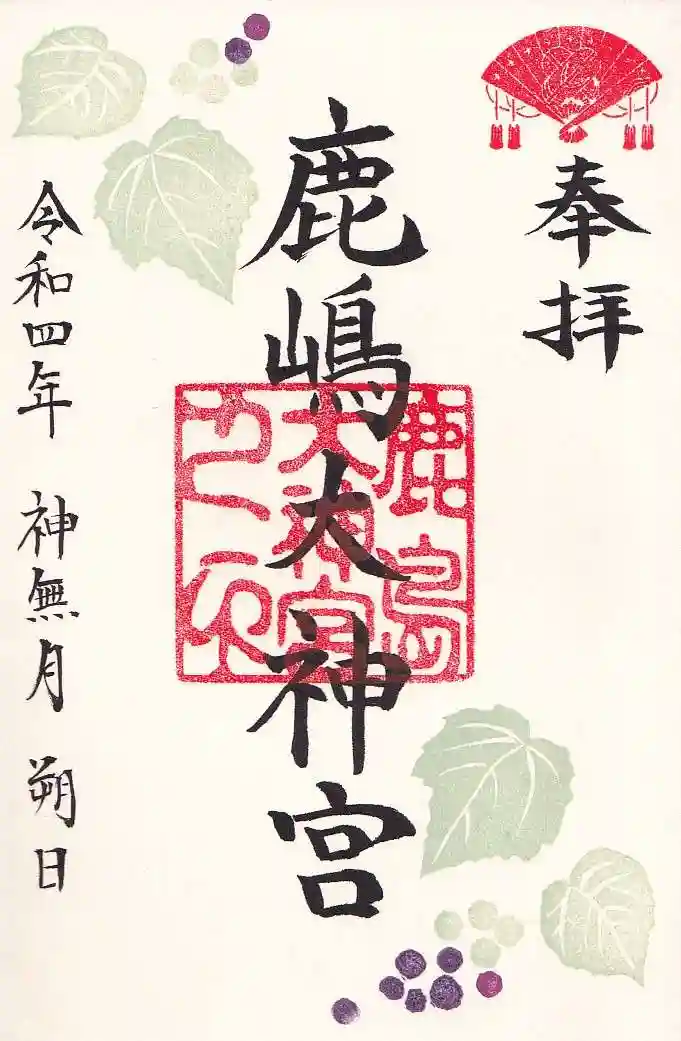 奉拝
鹿嶋大神宮
鹿島
大神宮
之印
令和四年 神無月 朔日